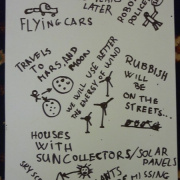 LATER
FLYING CARS
ROBOT
POLICE
TRAVELS
TO MARS AND
MOON.
WE WILL USE BETTER
THE ENERGY OF WIND
RUBBISH
WILL
BE
ON THE
STREETS...
HOUSES
WITH
SUN COLLECTORS/SOLAR
PANELS
MISSING